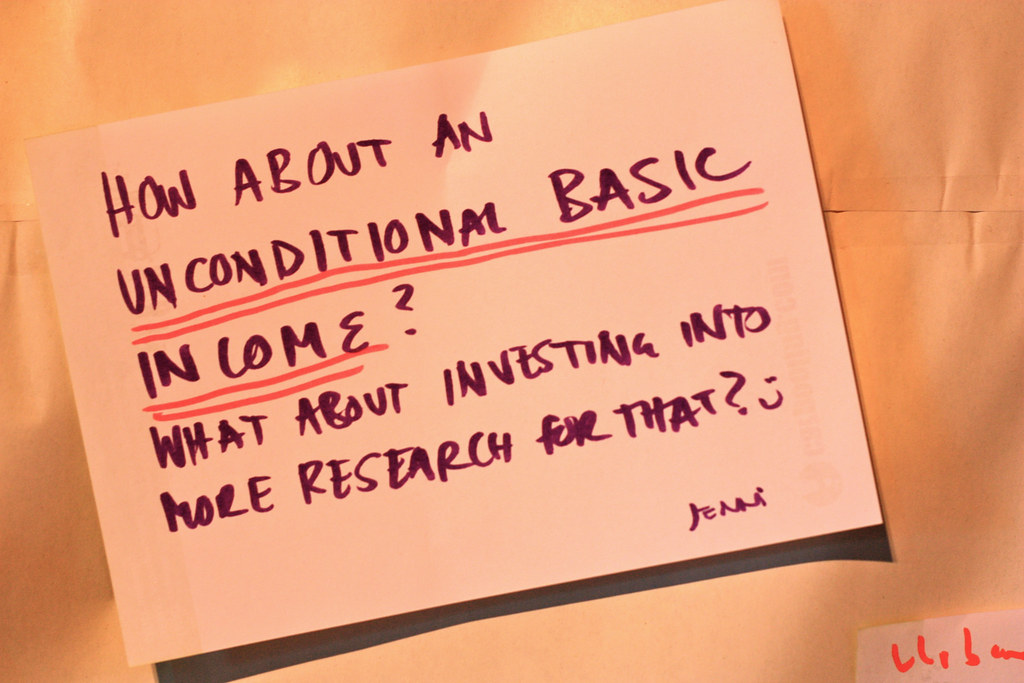 HOW ABOUT AN
UNCONDITIONAL BASIC
INCOME?
WHAT ABOUT INVESTING INTO
MORE RESEARCH FOR THAT? :)
JENNI